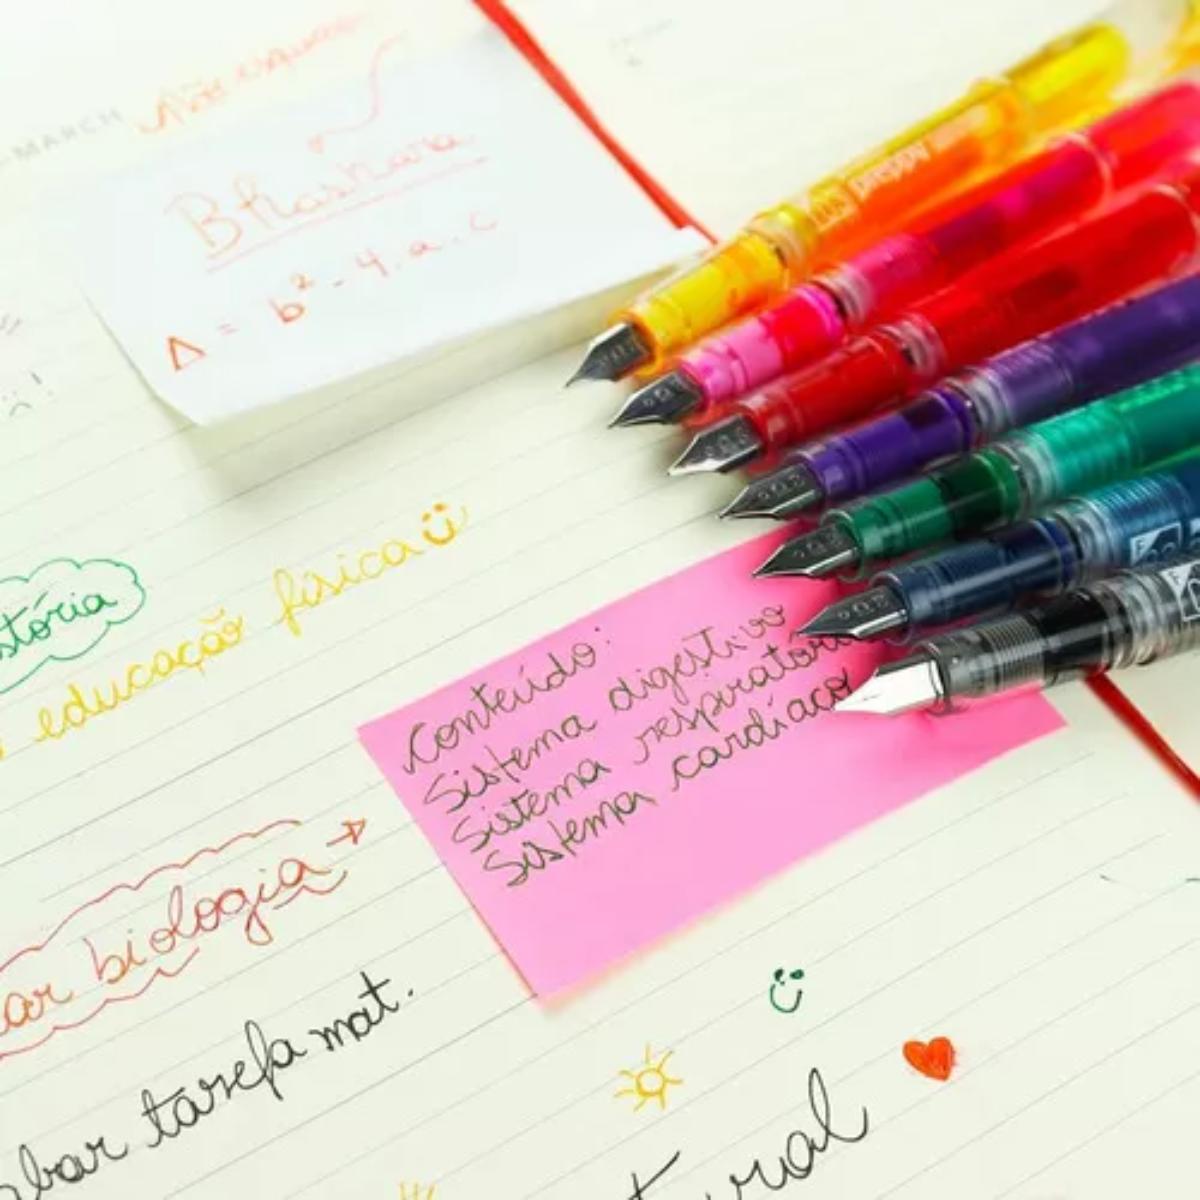 MARCH
Não esquecer
Bhaskara
Δ = b² - 4.a.c
preppy
stória
educação física
Conteúdo:
Sistema digestivo
Sistema respiratóri
Sistema cardíaco
ar biologia →
bar tarefa mat.